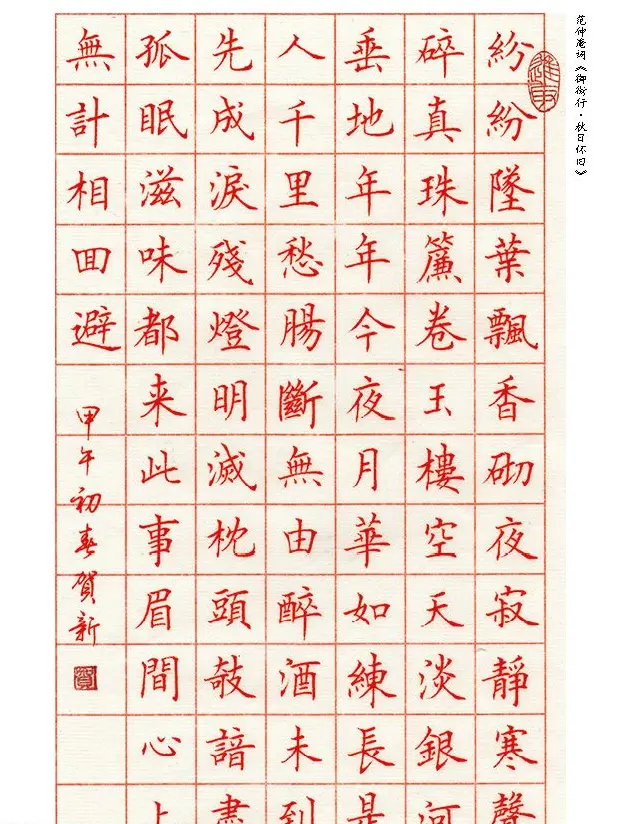 范仲淹词《御街行·秋日怀旧》
紛紛墜葉飄香砌夜寂靜寒聲
碎真珠簾卷玉樓空天淡銀河
垂地年年今夜月華如練長是
人千里愁腸斷無由醉酒未到
先成淚殘燈明滅枕頭敧諳盡
孤眠滋味都来此事眉間心上
無計相囬避
甲午初春賀新
賀